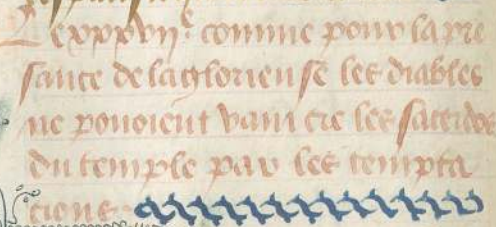 Le xxxvii e. comme pour la pre
sance de la glorieuse les diables
ne povoient vaincre les sacerdos
du temple par les tempta
cions